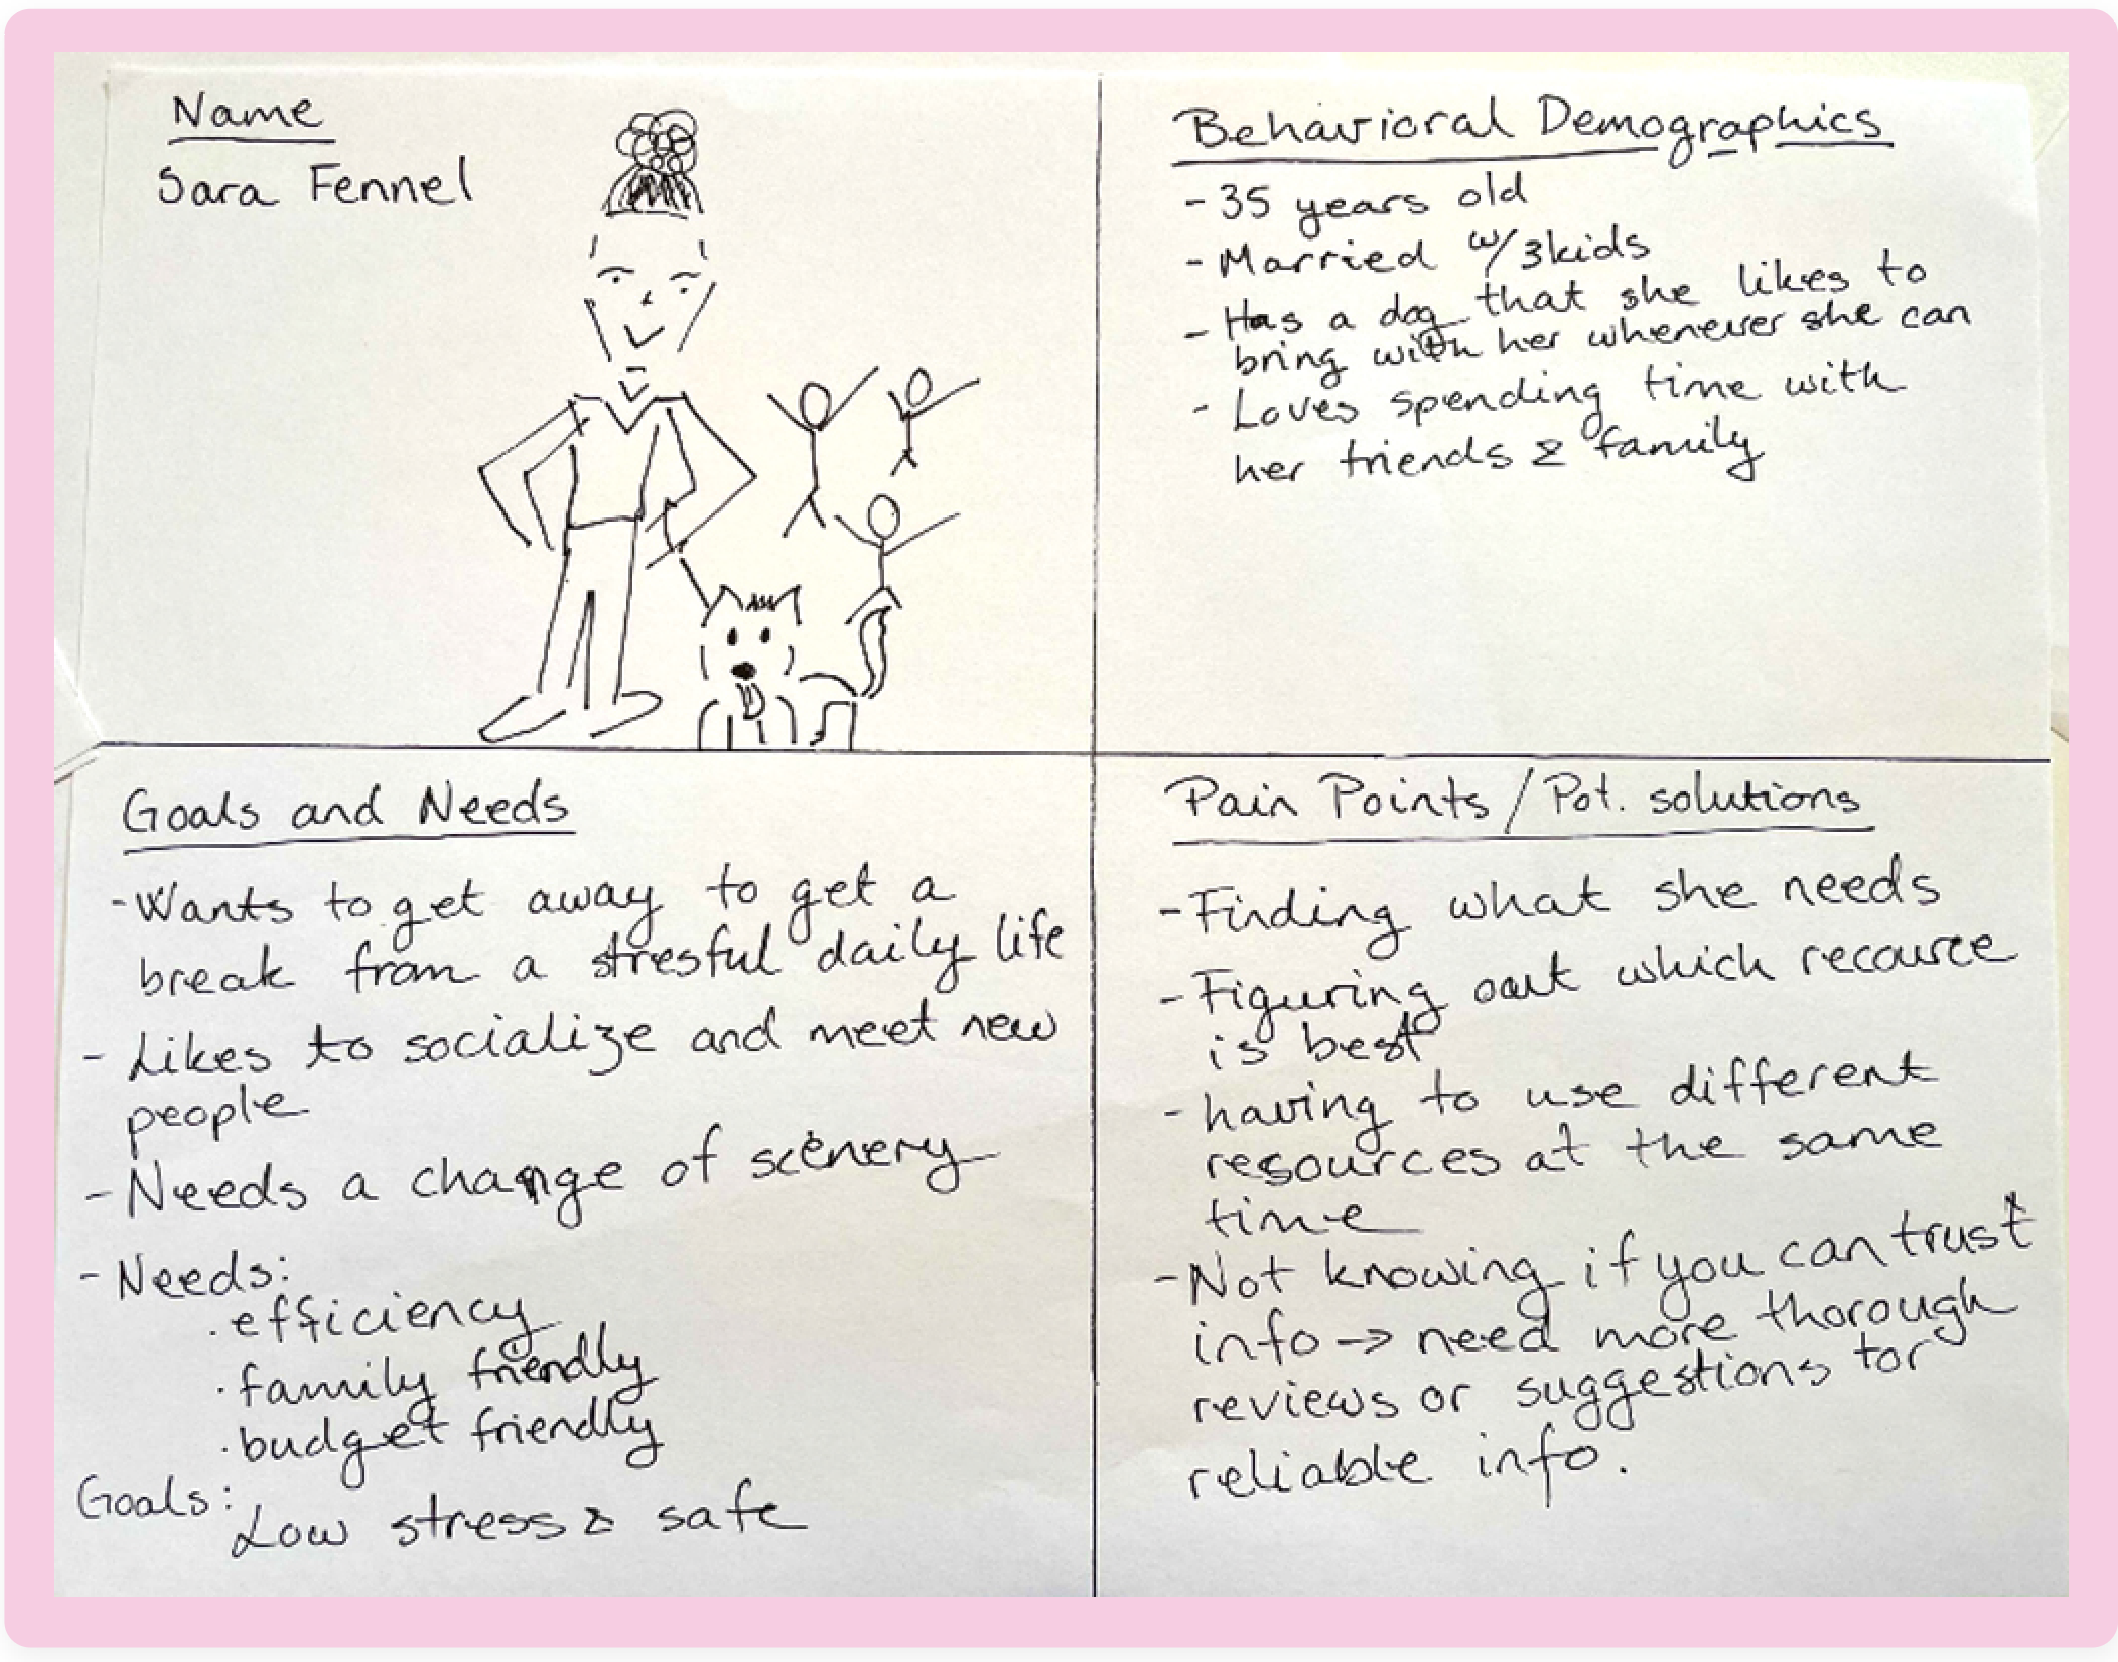 Name
Sara Fennel
Behavioral Demographics
- 35 years old
- Married w/ 3 kids
- Has a dog that she likes to
bring with her whenever she can
- Loves spending time with
her friends & family
Goals and Needs
- Wants to get away to get a
break from a stresful daily life
- Likes to socialize and meet new
people
- Needs a change of scenery
- Needs:
. efficiency
. family friendly
. budget friendly
Goals:
Low stress & safe
Pain Points / Pot. solutions
- Finding what she needs
- Figuring out which recource
is best
- having to use different
resources at the same
time
- Not knowing if you can trust
info → need more thorough
reviews or suggestions for
reliable info.